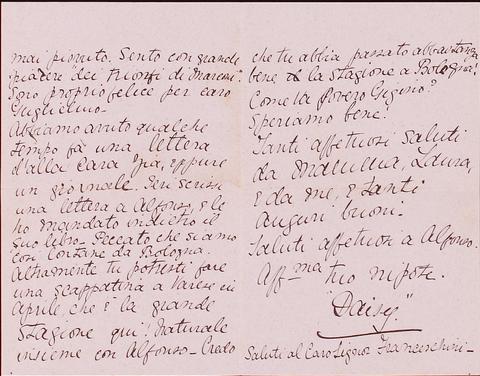 mai piovuto. Sento con grande
piacere "dei trionfi di Marconi".
Sono proprio felice per caro
Guglielmo -
Abbiamo avuto qualche
tempo fa una lettera
d'alla cara Pia, eppure
un giornale. Ieri scrissi
una lettera a Alfonso, e le
ho mandato indietro il
suo libro - Peccato che siamo
così lontane da Bologna.
Altramente tu potresti fare
una scappatina a Varese in
Aprile, che è la grande
stagione qui! Naturale
insieme con Alfonso - Credo
che tu abbia passato abbastanza
bene la stagione a Bologna!
Come va Povero Gigino?
Speriamo bene!
Tanti affetuosi saluti
da Mammina, Laura,
e da me, e tanti
auguri buoni -
Saluti affetuosi a Alfonso.
Aff-ma tuo nipote.
"Daisy"
Saluti al Caro Signor Franceschini -